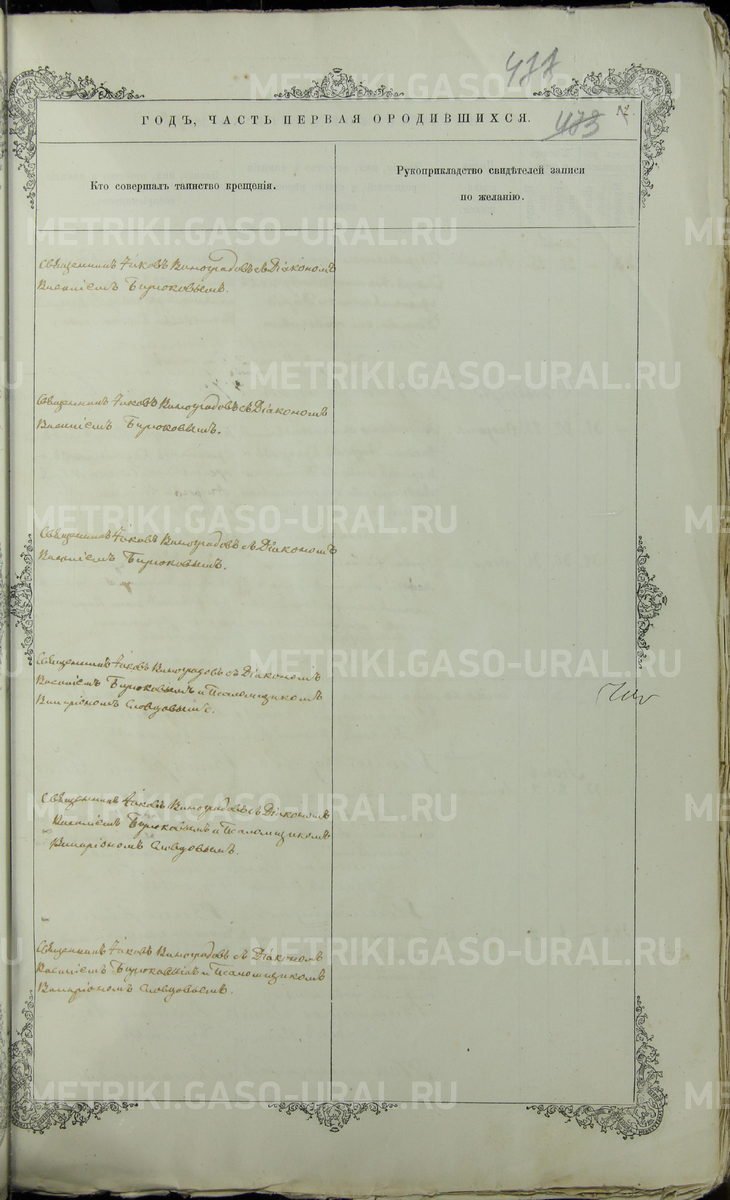 477
ГОДЪ, ЧАСТЬ ПЕРВАЯ О РОДИВШИХСЯ.
473
Кто совершалъ таинство крещенія.
Рукоприкладство свидѣтелей записи
по желанію.
Священникъ Іаковъ Виноградовъ съ Діакономъ
Василіемъ Бирюковымъ.
Священникъ Іаковъ Виноградовъ съ Діакономъ
Василіемъ Бирюковымъ.
Священникъ Іаковъ Виноградовъ съ Діакономъ
Василіемъ Бирюковымъ.
Священникъ Іаковъ Виноградовъ съ Діакономъ
Василіемъ Бирюковымъ и Псаломщикомъ
Словцовымъ.
Священникъ Іаковъ Виноградовъ съ Діакономъ
Василіемъ Бирюковымъ и Псаломщикомъ
Словцовымъ.
Священникъ Іаковъ Виноградовъ съ Діакономъ
Василіемъ Бирюковымъ и Псаломщикомъ
Словцовымъ.
METRIKI.GASO-URAL.RU